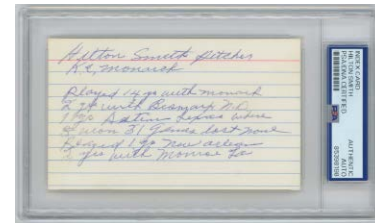 Hilton Smith Pitcher
K.C. Monarch
Played 14 yr with monarch
2 yr with Bismark N.D.
1 yr Austin Texas where
won 31 Games lost none
Played 1 yr New orlean
yrs with Monroe La
INDEX CARD
HILTON SMITH
PSA/DNA CERTIFIED
PSA
AUTHENTIC
AUTO